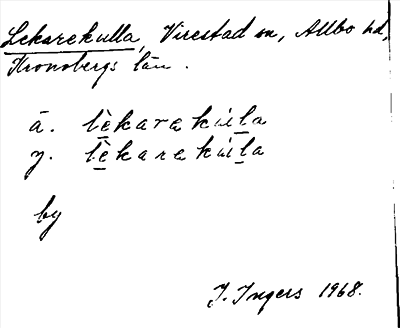 Lekarekulla, Virestad sn, Allbo hd,
Kronobergs län.
ä. lèkarekúlla
y. lèkarekúlla
by
I. Ingers 1968.